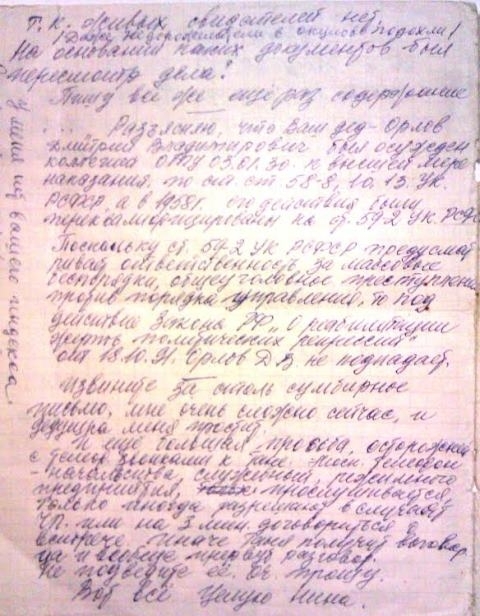 Т.к. живых свидетелей нет,
На основании каких документов был
пересмотр дела?
Пишу всё же ещё раз содержание
... Разъясняю, что Ваш дед - Орлов
Дмитрий Владимирович был осужден
коллегией ОГПУ 03.01.30. к высшей мере
наказания по ст. ст. 58-8, 10, 13. УК.
РСФСР, а в 1958г. его действия были
переквалифицированы на ст. 59-2 УК. РСФСР
Поскольку ст. 59-2 УК РСФСР предусмат
ривает ответственность за массовые
беспорядки, общеуголовное преступление
против порядка управления, то под
действие Закона РФ „О реабилитации
жертв политических репрессий"
от 18.10.91. Орлов Д.В. не подпадает.
Извините за столь сумбурное
письмо, мне очень сложно сейчас, и
дедушка меня простит.
И ещё большая просьба, осторожней
с телеф. звонками к Тане. телефон
- начальства, служебный, режимного
предприятия, прослушивается,
только иногда разрешают в случае
ЧП. или на 3 мин. договориться о
встрече, иначе Таня получит выговор
да и вообще прервут разговор.
Не подведите её. Оч. прошу.
Вот все Целую Нина.
у меня нет вашего индекса